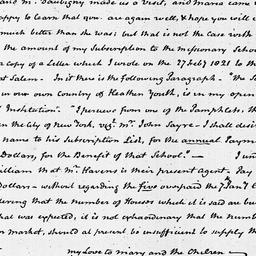 and M. Daubigny made us a Visit, and Maria came
happy to learn that you are again well, & hope you will c
much better than she was; but that is not the Case with
the amount of my Subscription to the Missionary School
a copy of a Letter which I wrote on the 27 Feby 1821 to th
at Salem. In it there is the following Paragraph - "The S
in our own Country of Heathen Youth, is in my open
Institution". "I peruse from one of the Pamphlets, th
in the City of New York, vizt. Mr. John Sayre - I shall desi
name to his Subscription List, for the annual Paym
Dollars, for the Benefit of that School." -
William that Mr. Havens is their present Agent - Pay
Dollars - without regarding the five overpaid the 7 Jany. l
dering that the number of Houses which it is said are bu
that was expected, it is not extraordinary that the numb
or market, should at present be insufficient to supply th
my Love to Mary and the Children